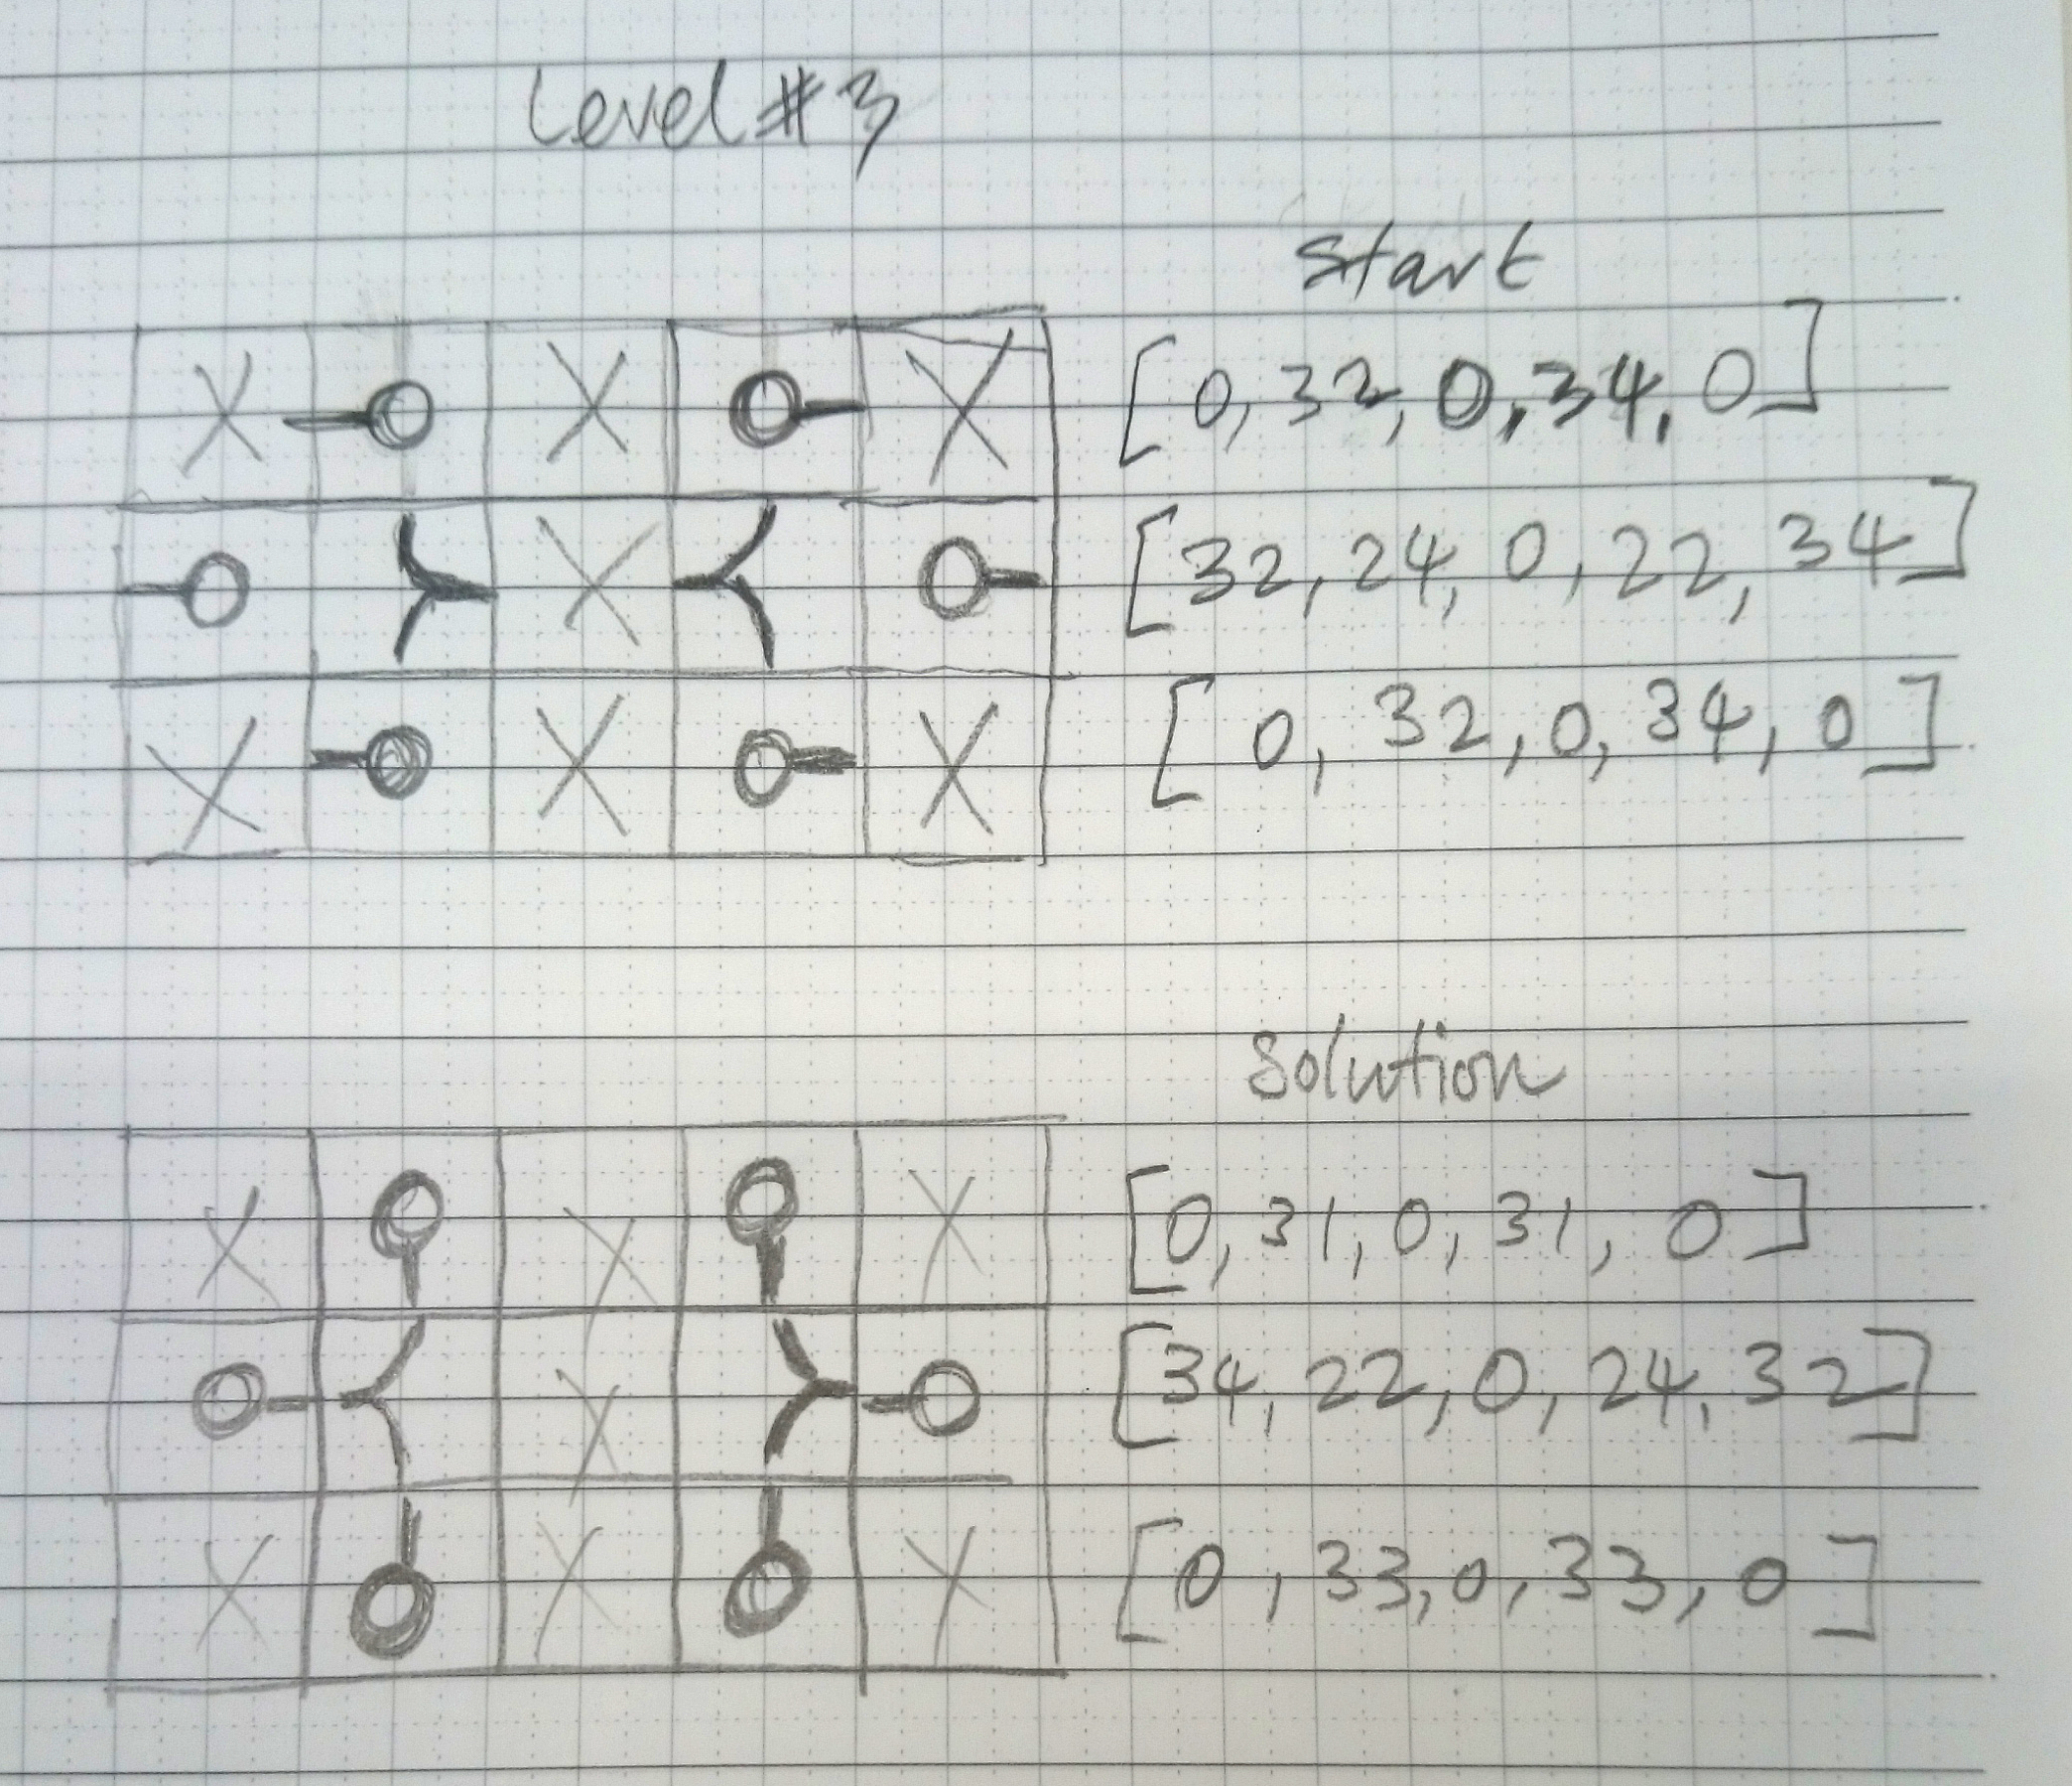 Level #3
Start
[0, 32, 0, 34, 0]
[32, 24, 0, 22, 34]
[0, 32, 0, 34, 0]
Solution
[0, 31, 0, 31, 0]
[34, 22, 0, 24, 32]
[0, 33, 0, 33, 0]